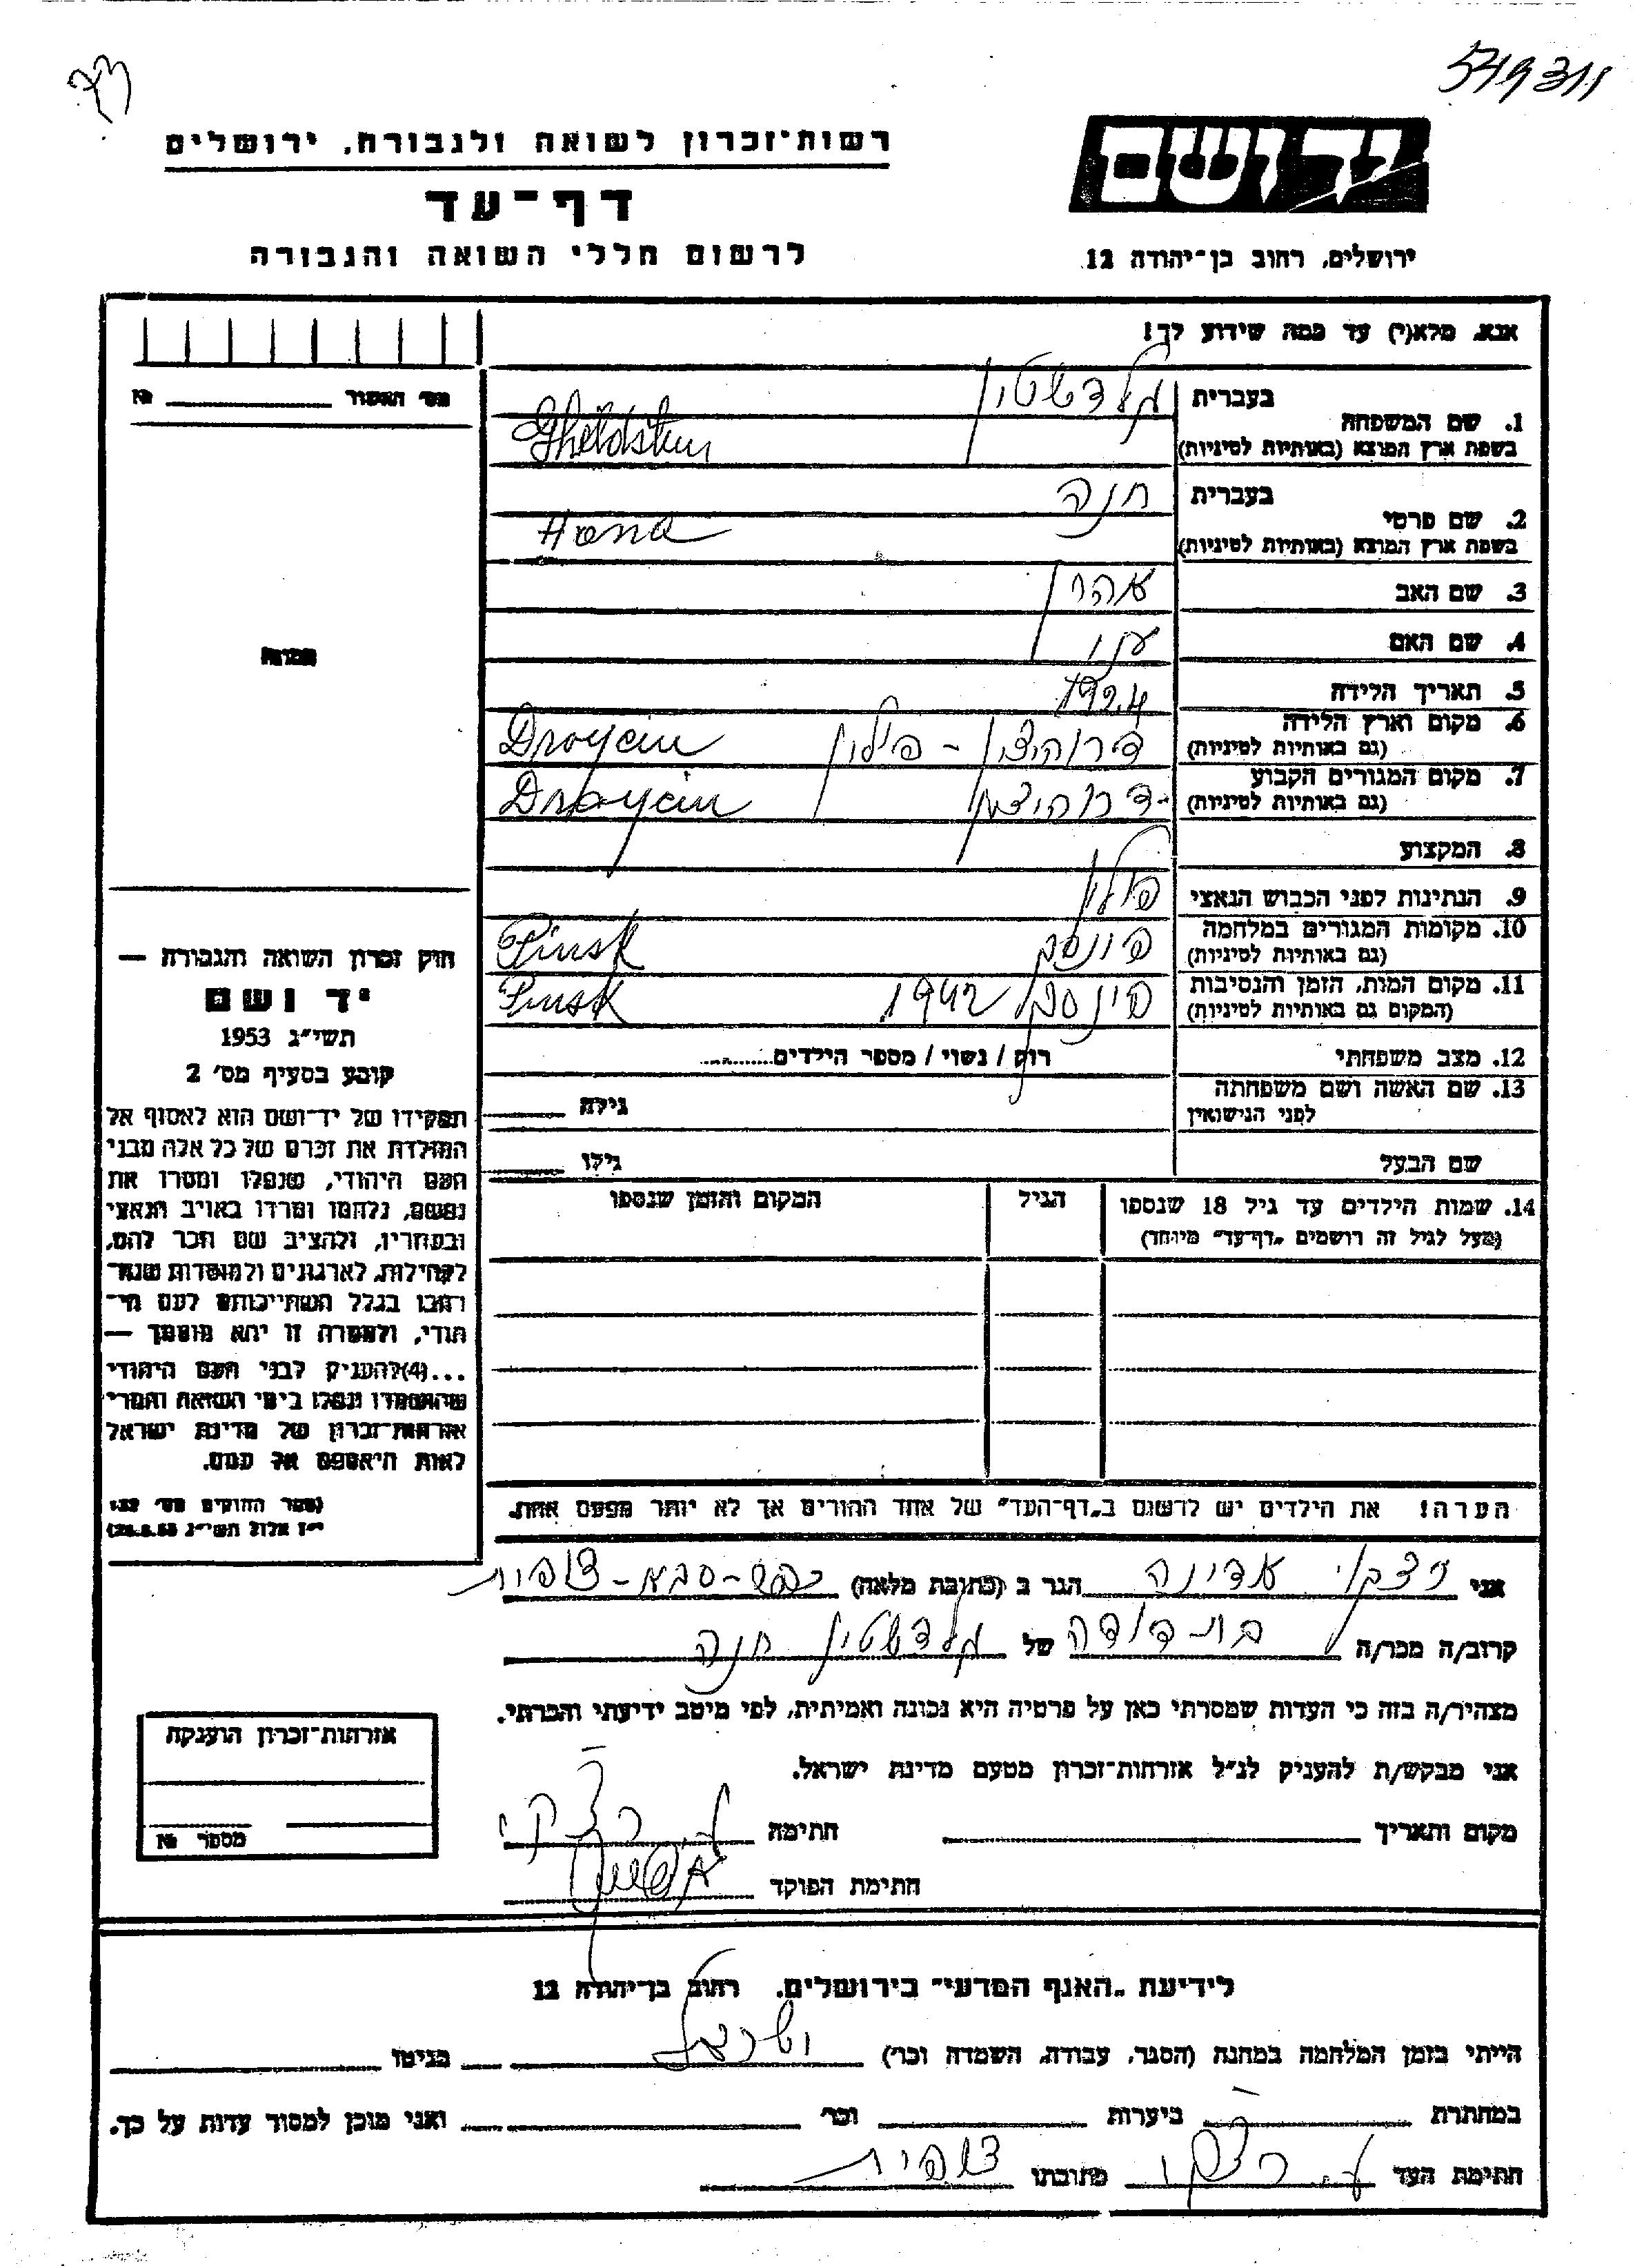 549311
רשות־זכרון לשואה ולגבורה, ירושלים
דף־עד
לרשום חללי השואה והגבורה
יד ושם
ירושלים, רחוב בן־יהודה 12
אנא, מלא(י) עד כמה שידוע לך!
מס׳ האשור № 
1. שם המשפחה
בעברית גלדשטין
בשפת ארץ המוצא (באותיות לטיניות) Gheldstein
2. שם פרטי
בעברית חנה
בשפת ארץ המוצא (באותיות לטיניות) Hana
3. שם האב אהרן
4. שם האם
5. תאריך הלידה 1924
6. מקום וארץ הלידה
(גם באותיות לטיניות) דרוהיצין - פולין Droycin
7. מקום המגורים הקבוע
(גם באותיות לטיניות) דרוהיצין Droycin
8. המקצוע
9. הנתינות לפני הכבוש הנאצי פולין
10. מקומות המגורים במלחמה
(גם באותיות לטיניות) פינסק Pinsk
11. מקום המות, הזמן והנסיבות
(המקום גם באותיות לטיניות) פינסק 1942 Pinsk
12. מצב משפחתי רוק / נשוי / מספר הילדים
13. שם האשה ושם משפחתה
לפני הנישואין גילה
שם הבעל גילו
14. שמות הילדים עד גיל 18 שנספו
(מעל לגיל זה רושמים „דף־עד״ מיוחד)
הגיל
המקום והזמן שנספו
תמונה
חוק זכרון השואה והגבורה —
יד ושם
תשי״ג 1953
קובע בסעיף מס׳ 2
תפקידו של יד־ושם הוא לאסוף אל
המולדת את זכרם של כל אלה מבני
העם היהודי, שנפלו ומסרו את
נפשם, נלחמו ומרדו באויב הנאצי
ובעוזריו, ולהציב שם וזכר להם,
לקהילות, לארגונים ולמוסדות שנח־
רבו בגלל השתייכותם לעם הי־
הודי, ולמטרה זו יהא מוסמך —
...(4)להעניק לבני העם היהודי
שהושמדו ונפלו בימי השואה והמרי
אזרחות־זכרון של מדינת ישראל
לאות היאספם אל עמם.
(ספר החוקים מס׳ 132
י״ז אלול תשי״ג 28.8.53)
הערה! את הילדים יש לרשום ב„דף־העד״ של אחד ההורים אך לא יותר מפעם אחת.
אני עדינה הגר ב (כתובת מלאה) כפר-סבא-צופית
קרוב/ה מכר/ה בת-דודה של גלדשטין חנה
מצהיר/ה בזה כי העדות שמסרתי כאן על פרטיה היא נכונה ואמיתית, לפי מיטב ידיעתי והכרתי.
אני מבקש/ת להעניק לנ״ל אזרחות־זכרון מטעם מדינת ישראל.
מקום ותאריך חתימה
חתימת הפוקד
אזרחות־זכרון הוענקה
מספר №
לידיעת „האגף המדעי״ בירושלים, רחוב בן־יהודה 12
הייתי בזמן המלחמה במחנה (הסגר, עבודה, השמדה וכו׳) ישראל בגיטו
במחתרת ביערות וכו׳ ואני מוכן למסור עדות על כך.
חתימת העד כתובתו צופית